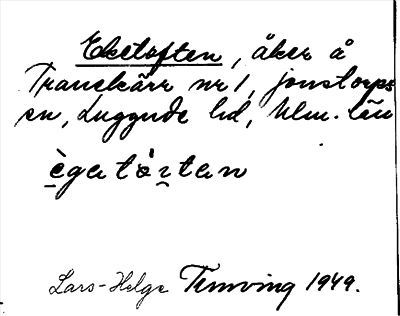 Eketoften, åker å
Tranekärr nr 1, Jonstorps
sn, Luggude hd, Mlm. län
ègatȯ́ɿtan
Lars-Helge Temving 1949.